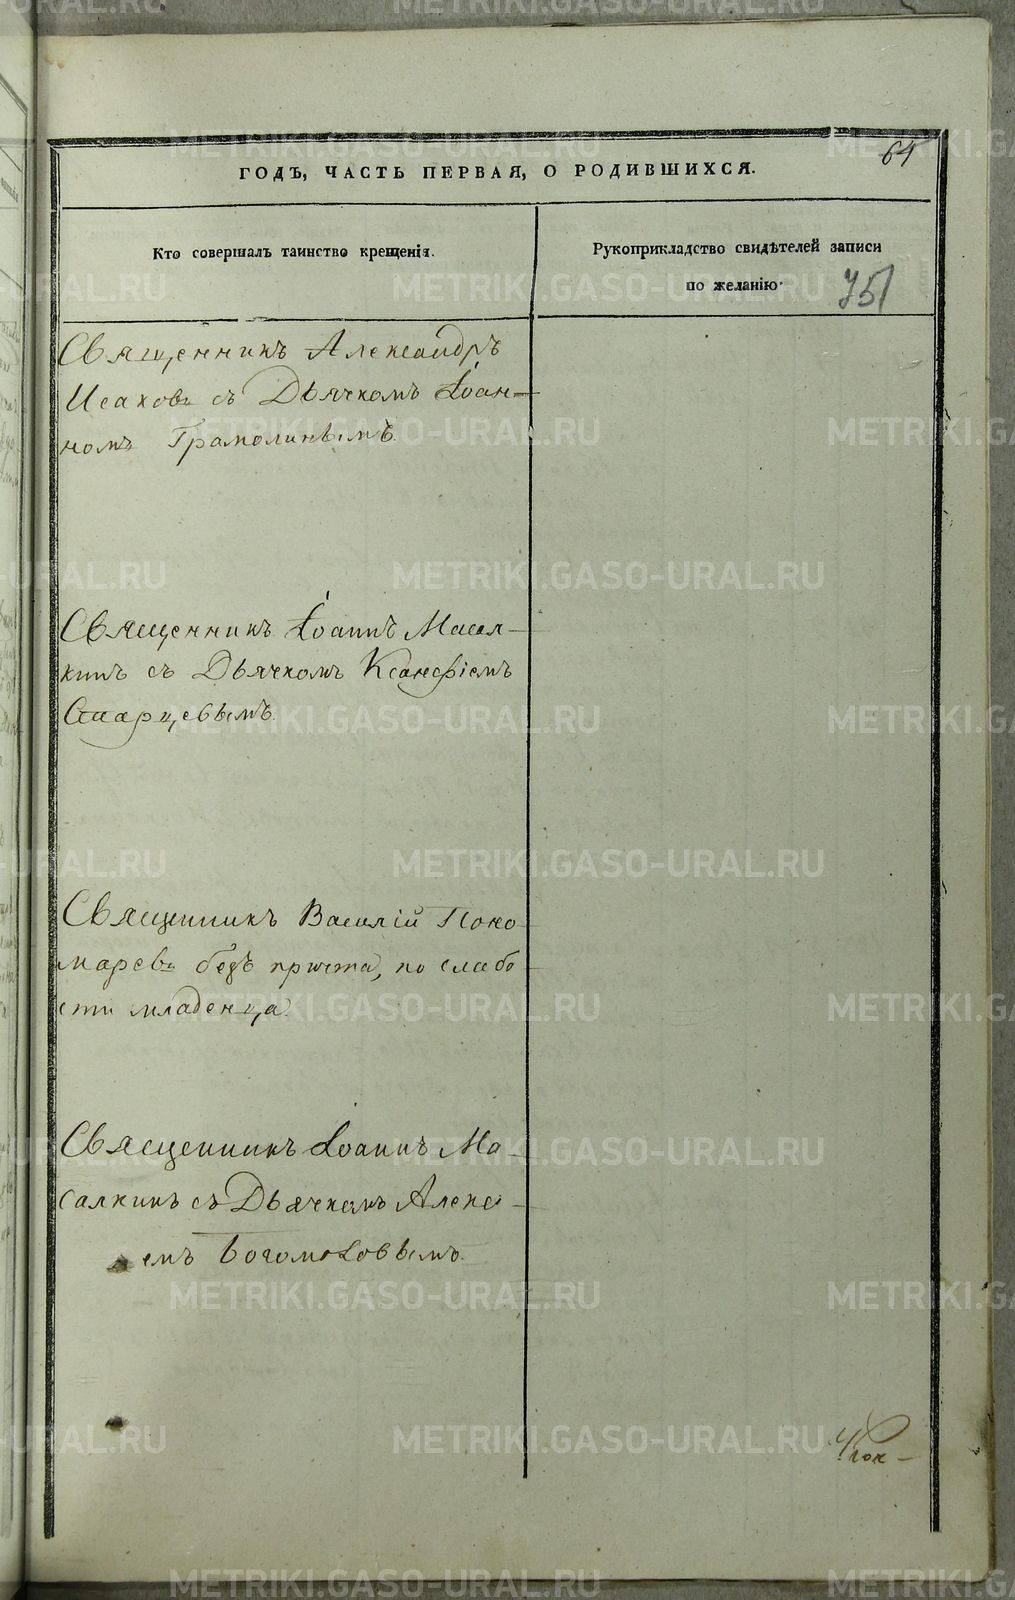 64
ГОДЪ, ЧАСТЬ ПЕРВАЯ, О РОДИВШИХСЯ.
Кто совершалъ таинство крещенія.
Рукоприкладство свидѣтелей записи
по желанію.
751
Священникъ Александръ
Исаковъ съ Дьячкомъ Іоан-
номъ Грамолинымъ.
Священникъ Іоаннъ Масал-
кинъ съ Дьячкомъ Ксанѳіемъ
Старцевымъ.
Священникъ Василій Поно-
маревъ безъ причта, по слабо
сти младенца.
Священникъ Іоаннъ Ма-
салкинъ съ Дьячкомъ Алексѣ-
емъ Богомоловымъ.
METRIKI.GASO-URAL.RU